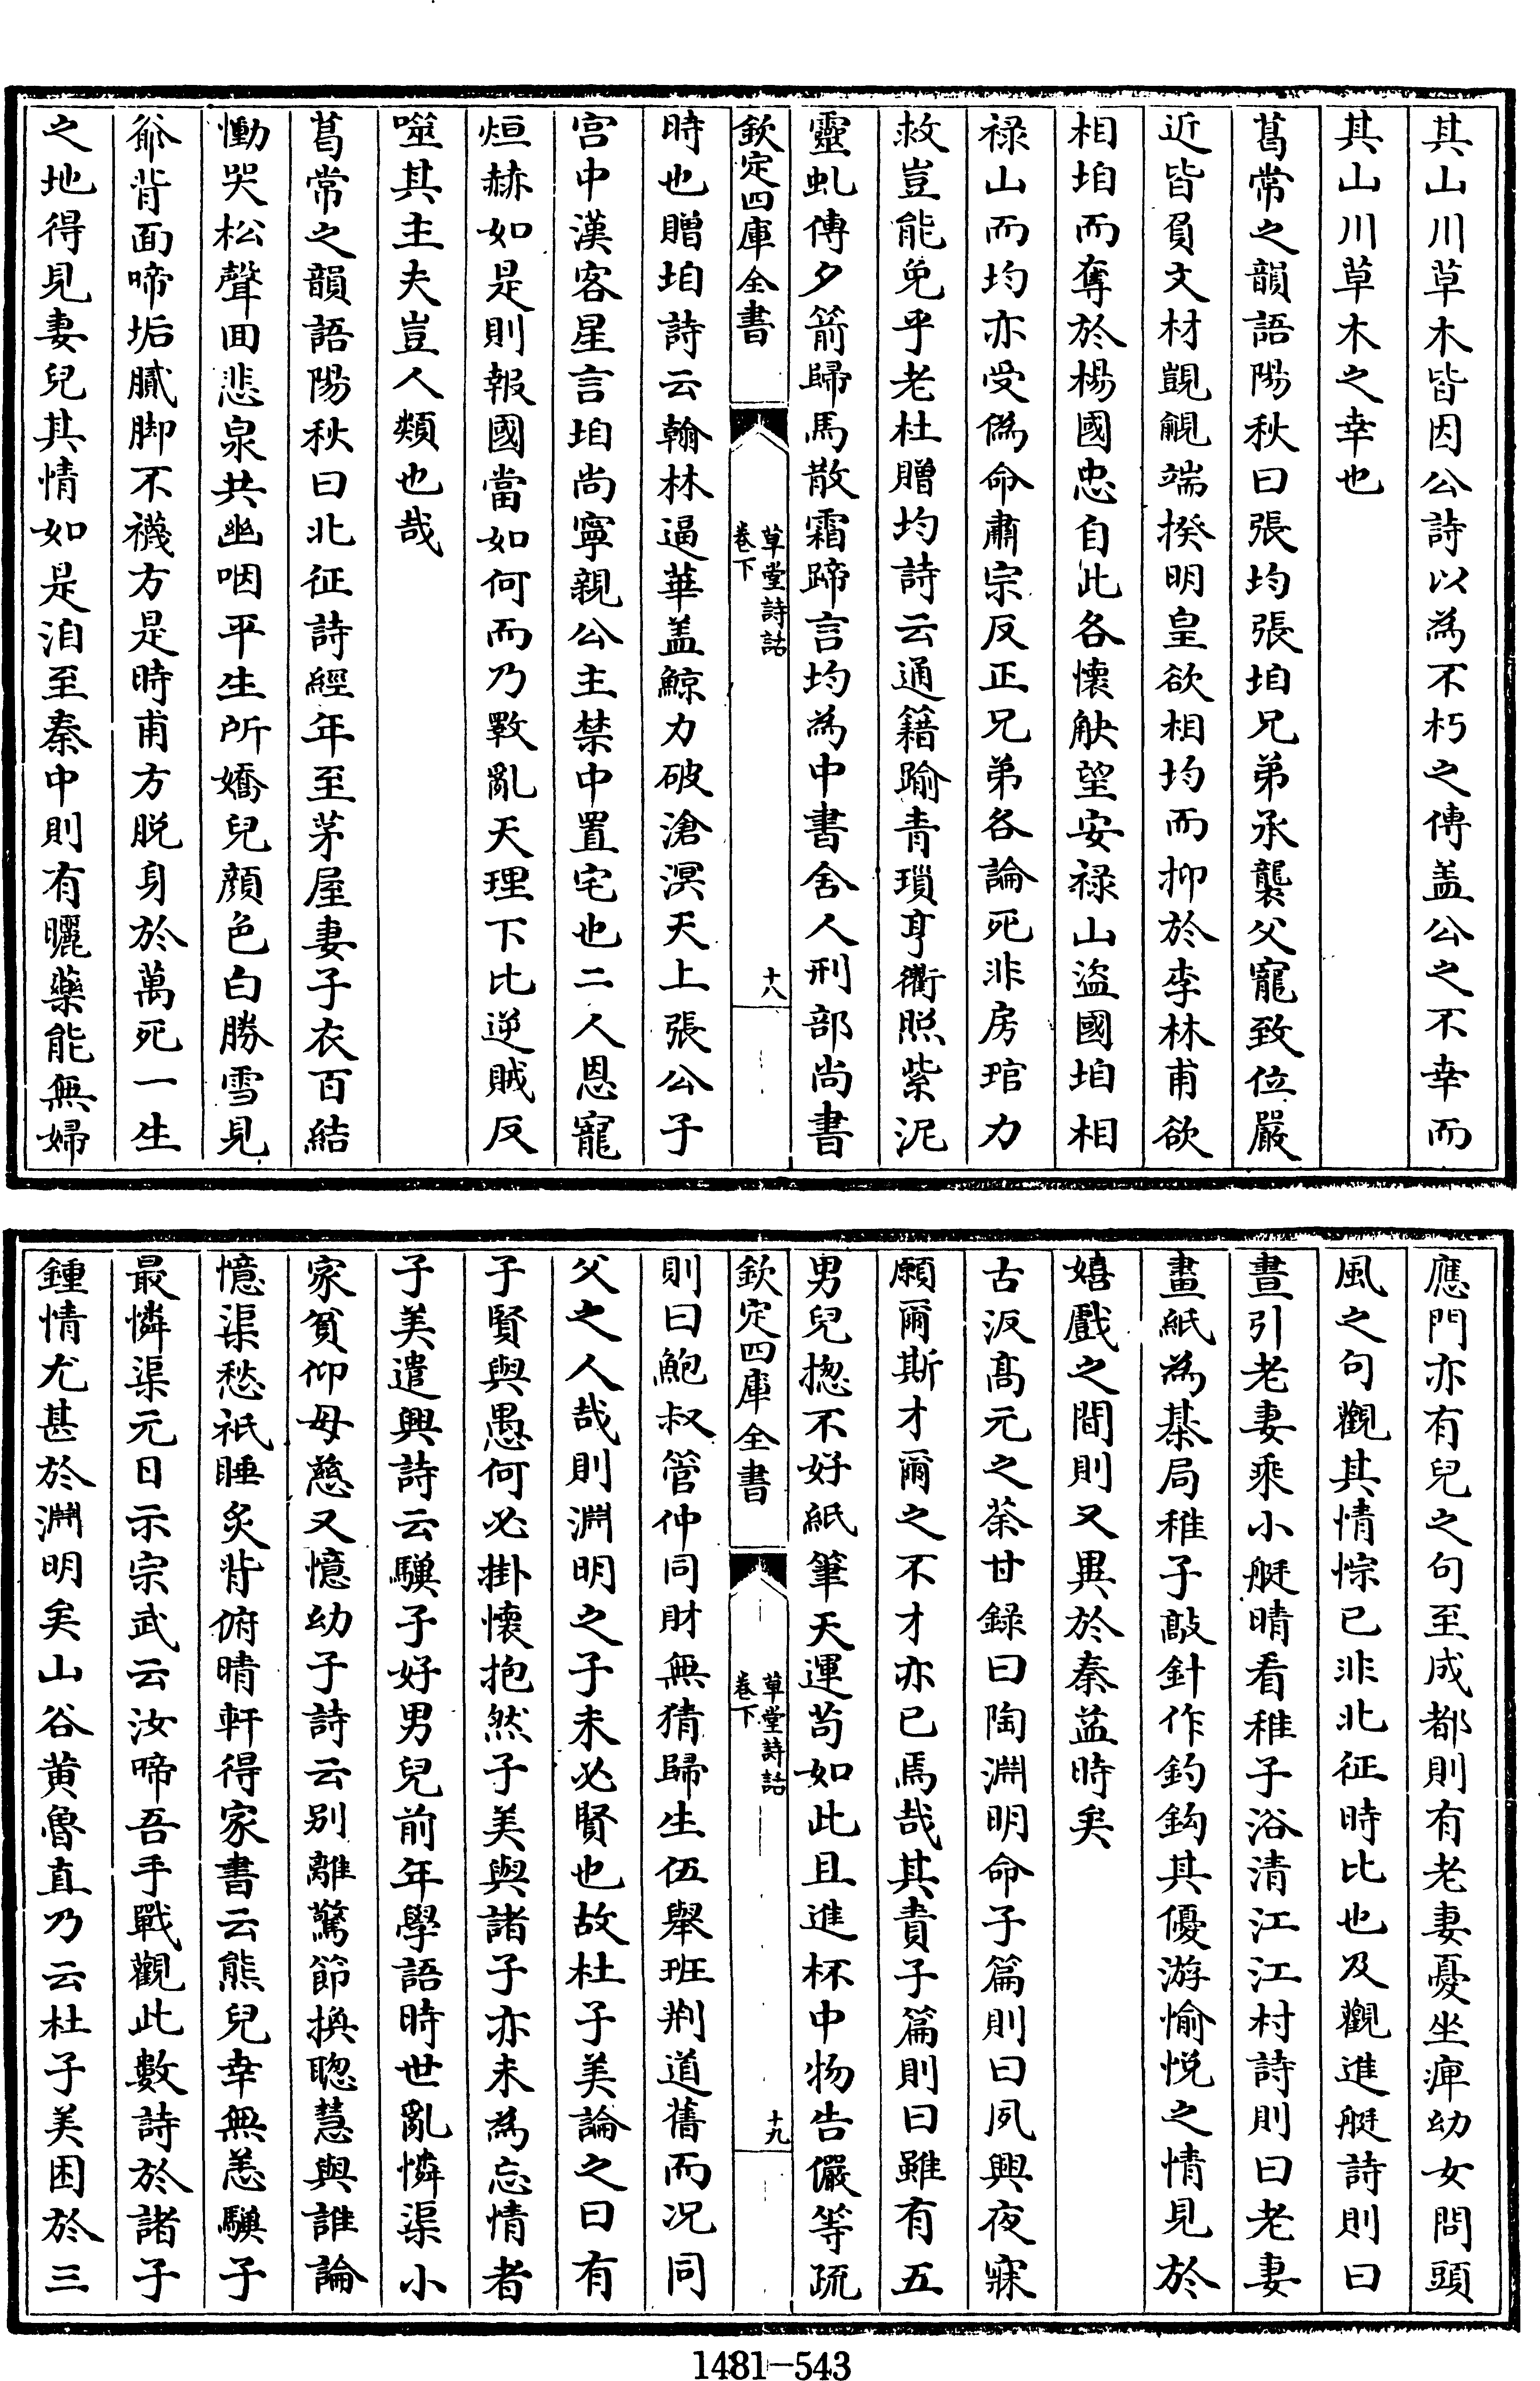 其山川草木皆因公詩以為不朽之傳盖公之不幸而
其山川草木之幸也
葛常之韻語陽秋曰張均張垍兄弟承襲父寵致位嚴
近皆負文材覬覦端揆明皇欲相均而抑於李林甫欲
相垍而奪於楊國忠自此各懷觖望安禄山盜國垍相
禄山而均亦受偽命肅宗反正兄弟各論死非房琯力
救豈能免乎老杜贈均詩云通籍踰青瑣亨衢照紫泥
靈虬傳夕箭歸馬散霜蹄言均為中書舍人刑部尚書
欽定四庫全書
草堂詩話
卷下
十八
時也贈垍詩云翰林逼華盖鯨力破滄溟天上張公子
宫中漢客星言垍尚寧親公主禁中置宅也二人恩寵
烜赫如是則報國當如何而乃斁亂天理下比逆賊反
噬其主夫豈人類也哉
葛常之韻語陽秋曰北征詩經年至茅屋妻子衣百結
慟哭松聲回悲泉共幽咽平生所嬌兒顔色白勝雪見
爺背面啼垢膩脚不襪方是時甫方脱身於萬死一生
之地得見妻兒其情如是洎至秦中則有曬藥能無婦
應門亦有兒之句至成都則有老妻憂坐痺幼女問頭
風之句觀其情悰已非北征時比也及觀進艇詩則曰
晝引老妻乘小艇晴看稚子浴清江江村詩則曰老妻
畫紙為棊局稚子敲針作釣鈎其優游愉悦之情見於
嬉戲之間則又異於秦益時矣
古汳髙元之荼甘録曰陶淵明命子篇則曰夙興夜寐
願爾斯才爾之不才亦已焉哉其責子篇則曰雖有五
男兒揔不好紙筆天運苟如此且進杯中物告儼等疏
欽定四庫全書
草堂詩話
卷下
十九
則曰鮑叔管仲同財無猜歸生伍舉班荆道舊而况同
父之人哉則淵明之子未必賢也故杜子美論之曰有
子賢與愚何必掛懷抱然子美與諸子亦未為忘情者
子美遣興詩云驥子好男兒前年學語時世亂憐渠小
家貧仰母慈又憶幼子詩云别離驚節換聰慧與誰論
憶渠愁祇睡炙背俯晴軒得家書云熊兒幸無恙驥子
最憐渠元日示宗武云汝啼吾手戰觀此數詩於諸子
鍾情尤甚於淵明矣山谷黄魯直乃云杜子美困於三
1481-543